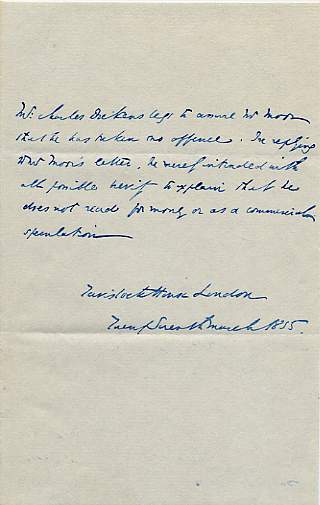 Mr. Charles Dickens begs to assure Mr Moon
that he has taken no offence. In replying
to Mr Moon's letter, he merely intended with
all possible brevity to explain that he
does not read for money or as a commercial
speculation
Tavistock House London
Twenty Seventh March 1855.